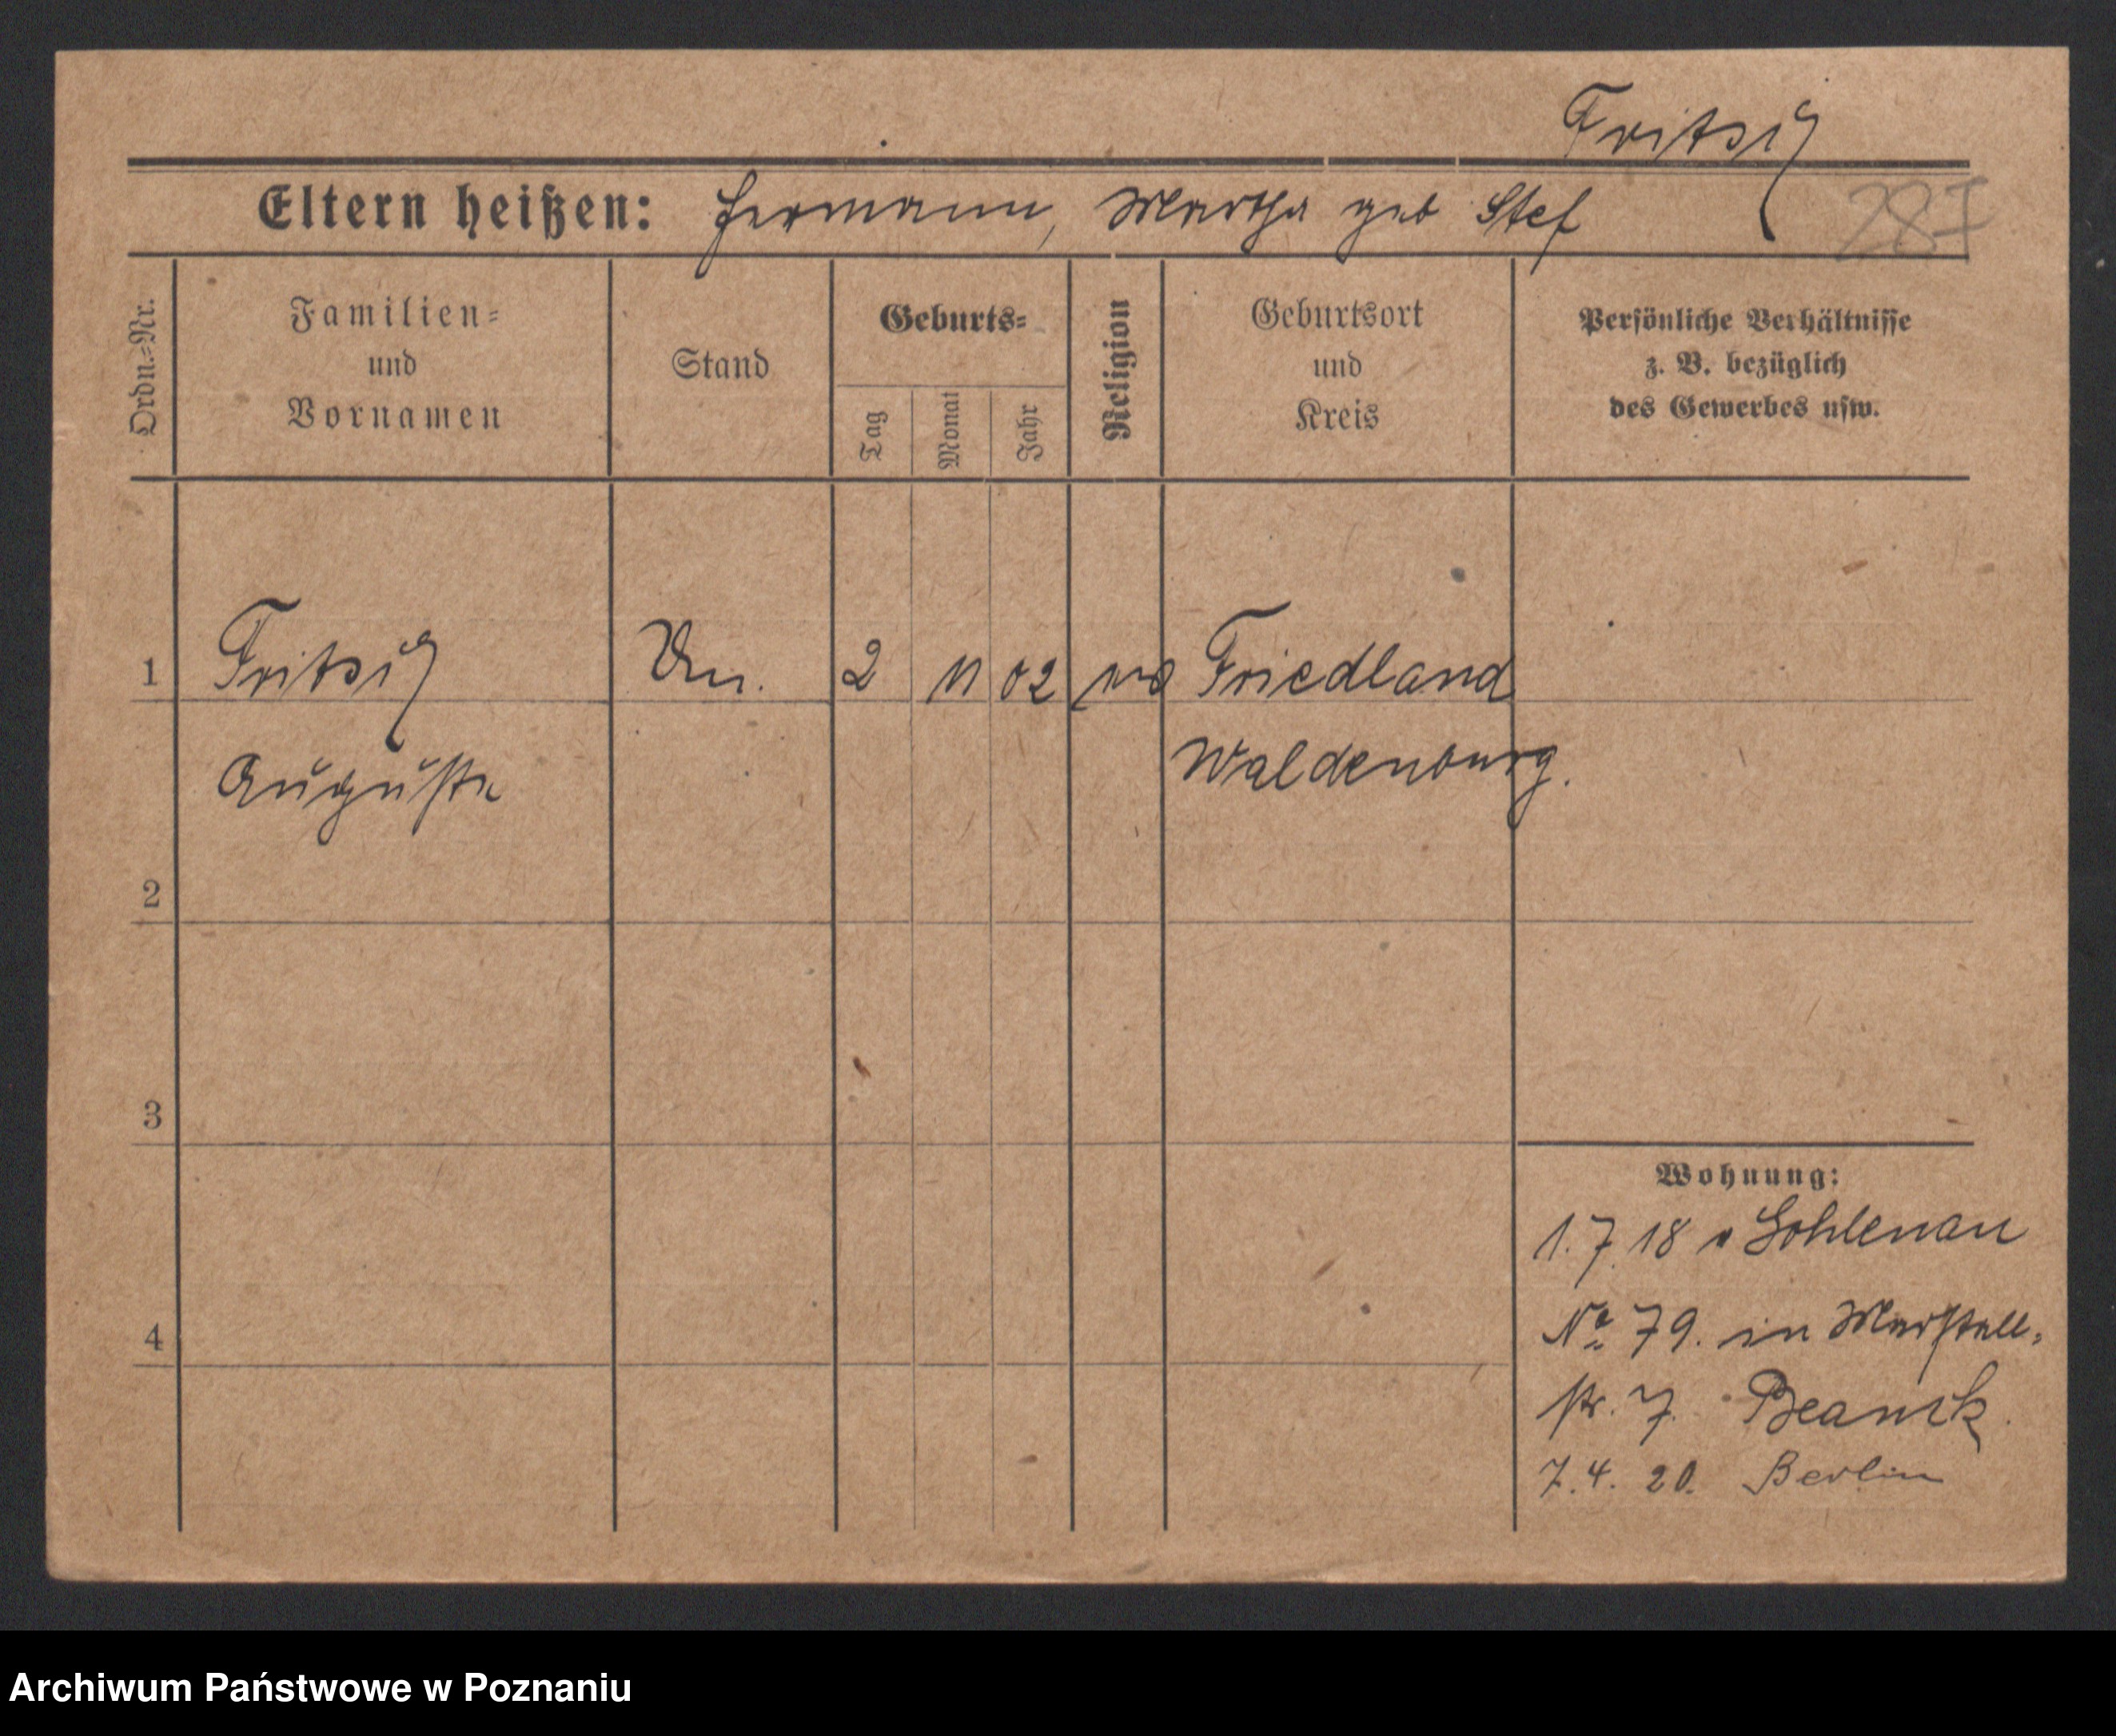 Fritsch
Eltern heißen: Hermann, Martha geb Stef
287
Ordn.-Nr.
Familien-
und
Vornamen
Stand
Geburts-
Tag
Monat
Jahr
Religion
Geburtsort
und
Kreis
Persönliche Verhältnisse
z. B. bezüglich
des Gewerbes usw.
1 Fritsch 2 11 02 Friedland
Auguste Waldenburg.
2
3
Wohnung:
1.7.18 v Göhlenau
№ 79. in Marstall-
4
str. 7.
7.4.20. Berlin
Archiwum Państwowe w Poznaniu